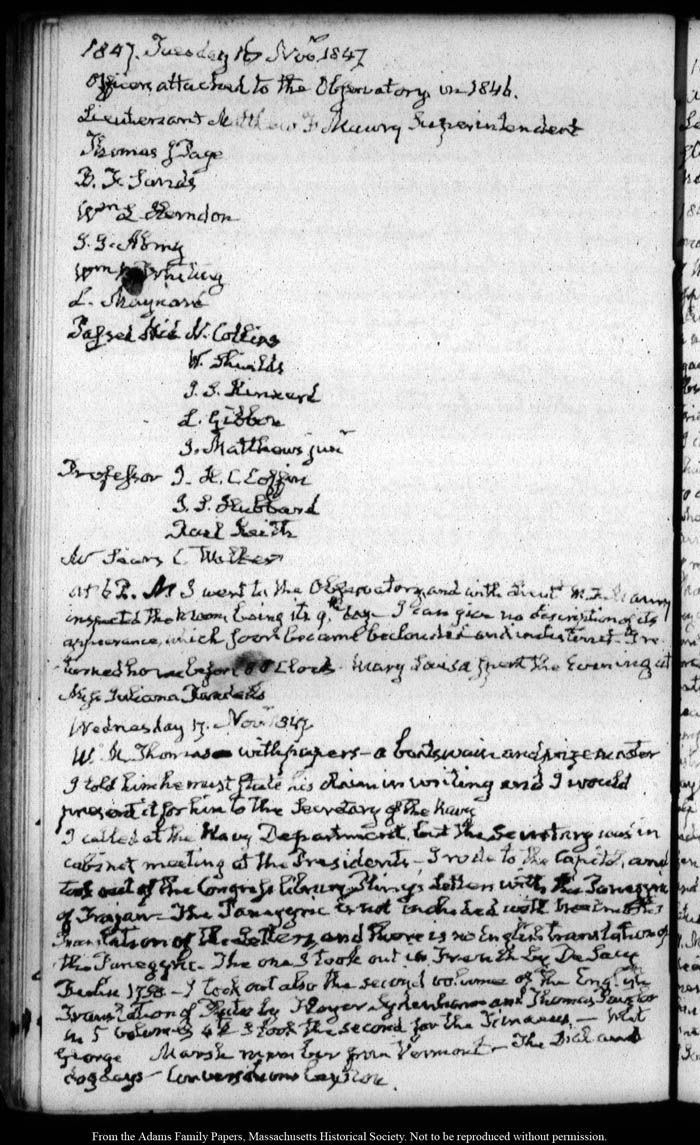 1847. Tuesday 16 Novr 1847
Officers attached to the Observatory in 1846.
Lieutenant Matthew F Maury Superintendent
Thomas J Page
B. F. Sands
Wm L Herndon
J. J. Almy
Wm Whiting
L. Maynard
Passed Mid N. Collins
W. Shields
L. Gibbon
J. Matthews junr
Professor J. H. C. Coffin
J. S. Hubbard
Keith
Mr Sears C. Walker
at 6 P. M I went to the Observatory and with Lieut M. F. Maury
inspected the Moon being its 9th day I can give no description of its
appearance, which soon became beclouded and indistinct. I re-
turned home before 8 O Clock. Mary Louisa spent the Evening at
Miss Juliana
Wednesday 17. Novr 1847
W. Thomas with papers – a boatswain and prize master
I told him he must state his claim in writing and I would
present it for him to the Secretary of the Navy
I called at the Navy Department, but the Secretary was in
cabinet meeting at the Presidents – I rode to the Capitol, and
took out of the Congress library Plinys Letters with the Panegyric
of Trajan – The Panegyric is not included with
Translation of the Letters, and there is no English translation of
the Panegyric. The one I took out is French by De Sacy
1798 – I took out also the second volume of the English
Translation of Plato by Floyer Sydenham and Thomas Taylor
in 5 volumes 4to I took the second for the Timaeus –
George Marsh member from Vermont – The
dogdays – Conversations